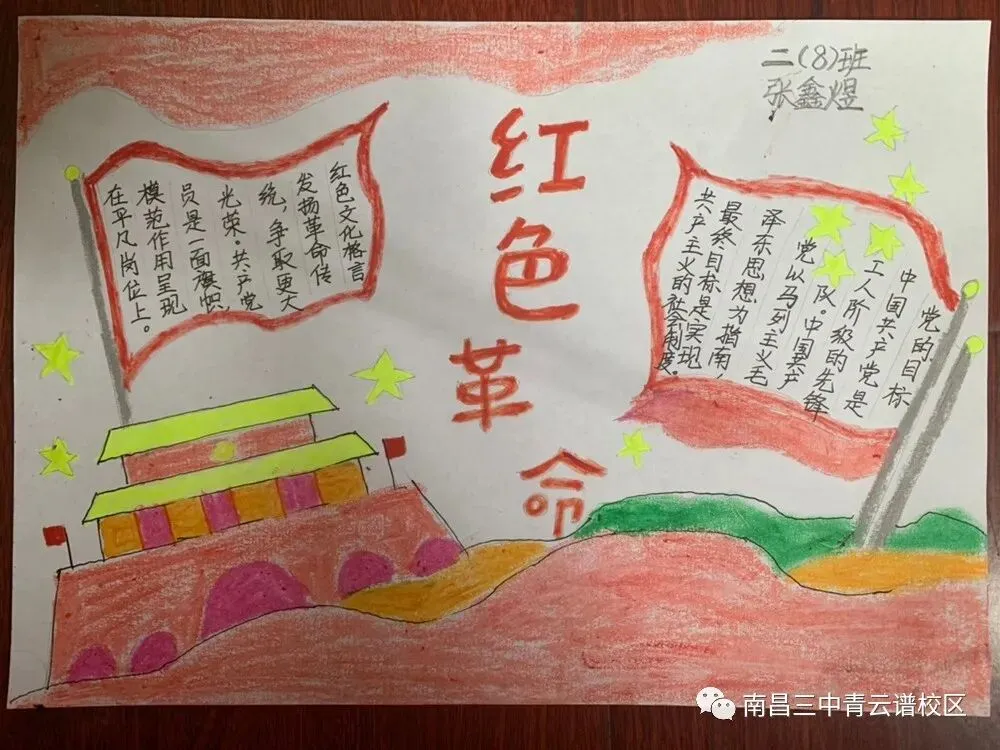 二(8)班
张鑫煜
红色革命
红色文化格言
发扬革命传
统，争取更大
光荣。共产党
员是一面旗帜，
模范作用呈现
在平凡岗位上。
党的目标
中国共产党是
工人阶级的先锋
队。中国共产
党以马列主义毛
泽东思想为指南，
最终目标是实现
共产主义的社会制度。
南昌三中青云谱校区